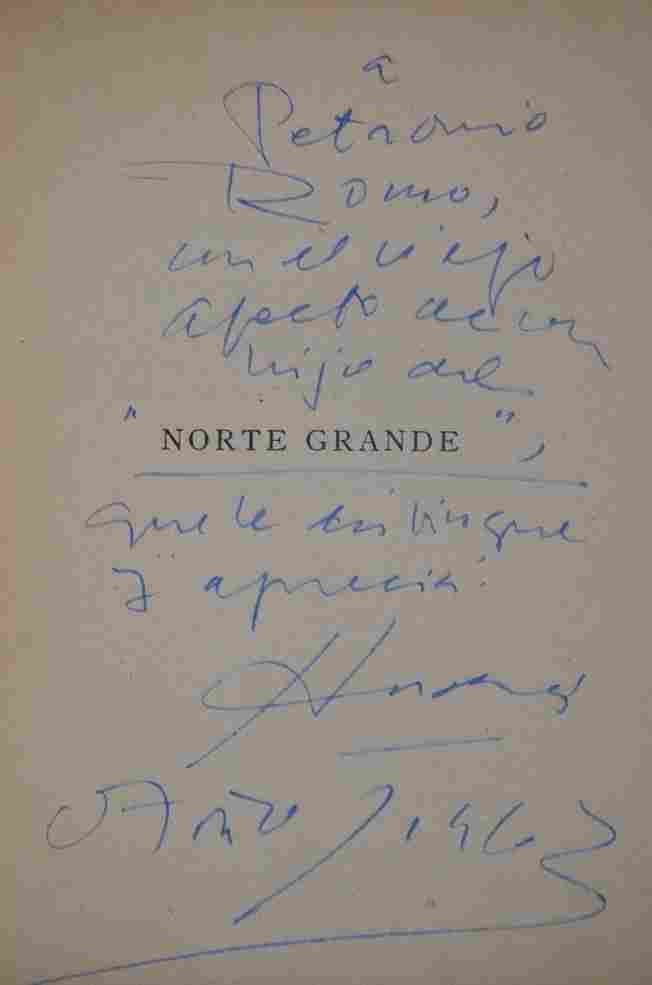 a
Petronio
Romo,
con el viejo
afecto de un
hijo del
"NORTE GRANDE",
que le distingue
y aprecia: